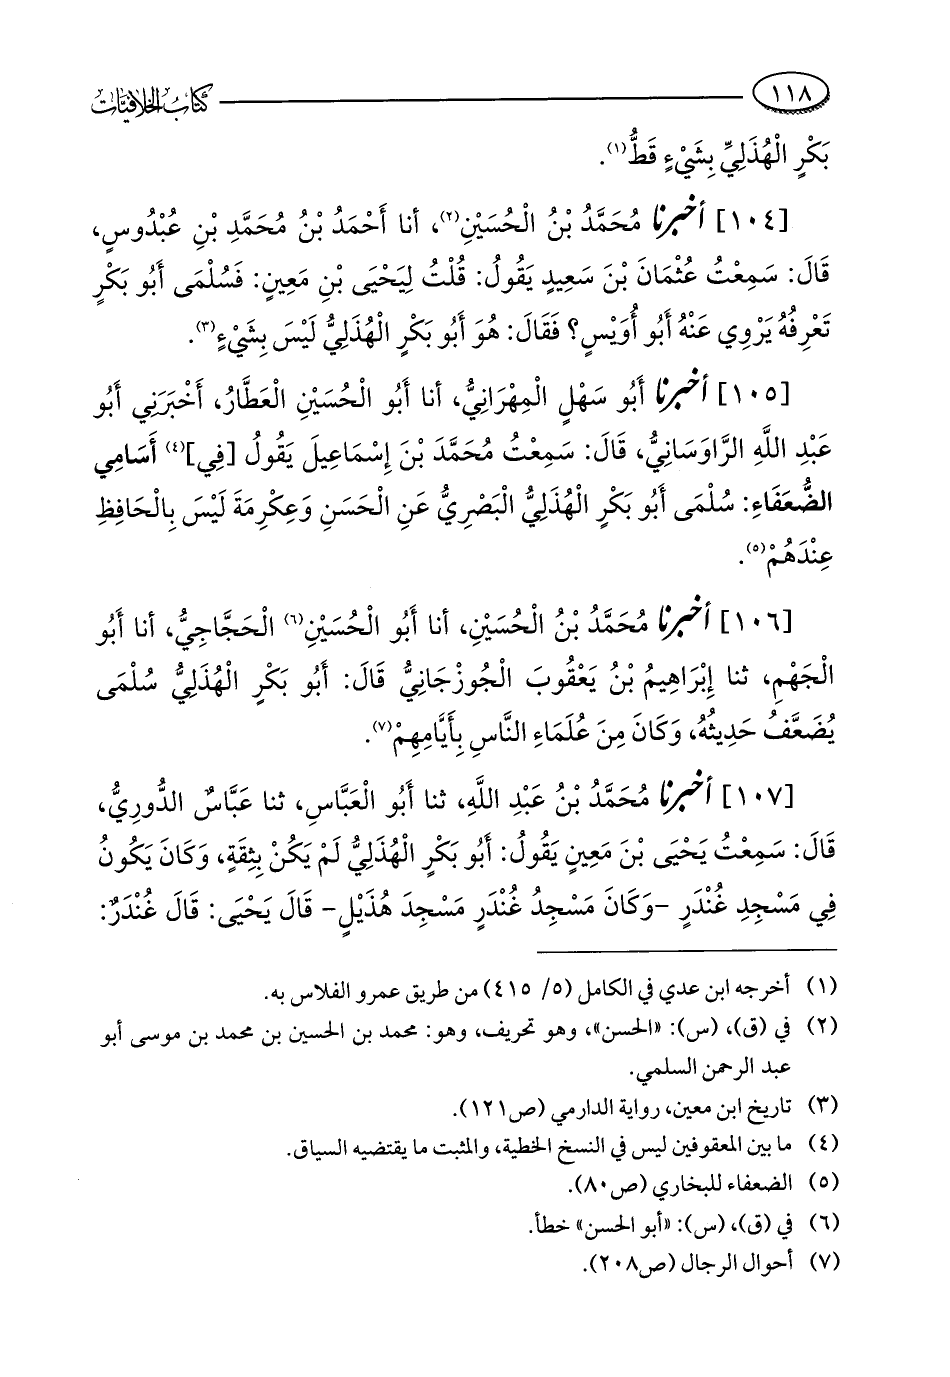 ١١٨ كتاب الخلافيات
بَكْرٍ الْهُذَلِيِّ بِشَيْءٍ قَطُّ(١).
[١٠٤] أخبرنا مُحَمَّدُ بْنُ الْحُسَيْنِ(٢)، أنا أَحْمَدُ بْنُ مُحَمَّدِ بْنِ عُبْدُوسٍ،
قَالَ: سَمِعْتُ عُثْمَانَ بْنَ سَعِيدٍ يَقُولُ: قُلْتُ لِيَحْيَى بْنِ مَعِينٍ: فَسُلْمَى أَبُو بَكْرٍ
تَعْرِفُهُ يَرْوِي عَنْهُ أَبُو أُوَيْسٍ؟ فَقَالَ: هُوَ أَبُو بَكْرٍ الْهُذَلِيُّ لَيْسَ بِشَيْءٍ(٣).
[١٠٥] أخبرنا أَبُو سَهْلٍ الْمِهْرَانِيُّ، أنا أَبُو الْحُسَيْنِ الْعَطَّارُ، أَخْبَرَنِي أَبُو
عَبْدِ اللَّهِ الرَّاوَسَانِيُّ، قَالَ: سَمِعْتُ مُحَمَّدَ بْنَ إِسْمَاعِيلَ يَقُولُ [فِي](٤) أَسَامِي
الضُّعَفَاءِ: سُلْمَى أَبُو بَكْرٍ الْهُذَلِيُّ الْبَصْرِيُّ عَنِ الْحَسَنِ وَعِكْرِمَةَ لَيْسَ بِالْحَافِظِ
عِنْدَهُمْ(٥).
[١٠٦] أخبرنا مُحَمَّدُ بْنُ الْحُسَيْنِ، أنا أَبُو الْحُسَيْنِ(٦) الْحَجَّاجِيُّ، أنا أَبُو
الْجَهْمِ، ثنا إِبْرَاهِيمُ بْنُ يَعْقُوبَ الْجُوزْجَانِيُّ قَالَ: أَبُو بَكْرٍ الْهُذَلِيُّ سُلْمَى
يُضَعَّفُ حَدِيثُهُ، وَكَانَ مِنَ عُلَمَاءِ النَّاسِ بِأَيَّامِهِمْ(٧).
[١٠٧] أخبرنا مُحَمَّدُ بْنُ عَبْدِ اللَّهِ، ثنا أَبُو الْعَبَّاسِ، ثنا عَبَّاسٌ الدُّورِيُّ،
قَالَ: سَمِعْتُ يَحْيَى بْنَ مَعِينٍ يَقُولُ: أَبُو بَكْرٍ الْهُذَلِيُّ لَمْ يَكُنْ بِثِقَةٍ، وَكَانَ يَكُونُ
فِي مَسْجِدِ غُنْدَرٍ -وَكَانَ مَسْجِدُ غُنْدَرٍ مَسْجِدَ هُذَيْلٍ- قَالَ يَحْيَى: قَالَ غُنْدَرٌ:
(١) أخرجه ابن عدي في الكامل (٥/ ٤١٥) من طريق عمرو الفلاس به.
(٢) في (ق)، (س): «الحسن»، وهو تحريف، وهو: محمد بن الحسين بن محمد بن موسى أبو
عبد الرحمن السلمي.
(٣) تاريخ ابن معين، رواية الدارمي (ص١٢١).
(٤) ما بين المعقوفين ليس في النسخ الخطية، والمثبت ما يقتضيه السياق.
(٥) الضعفاء للبخاري (ص٨٠).
(٦) في (ق)، (س): «أبو الحسن» خطأ.
(٧) أحوال الرجال (ص٢٠٨).